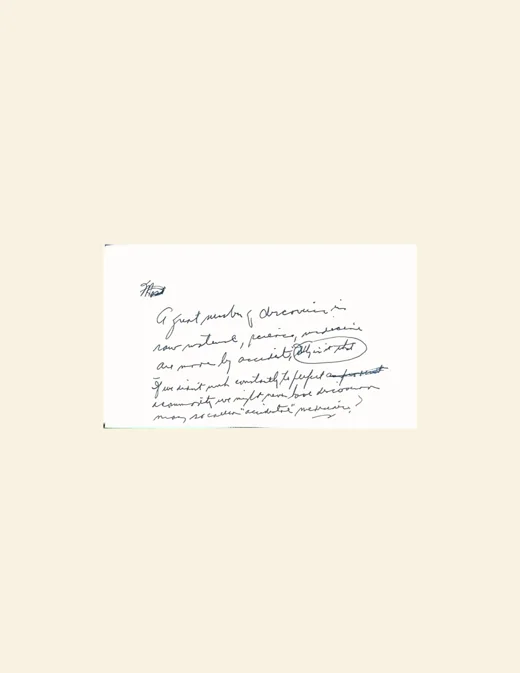 A great number of discoveries in
raw material, science, medicine
are made by accident, Why is it that
If we didn't work constantly to perfect
a commodity we might never have discovered
many so called "accidental" medicines?